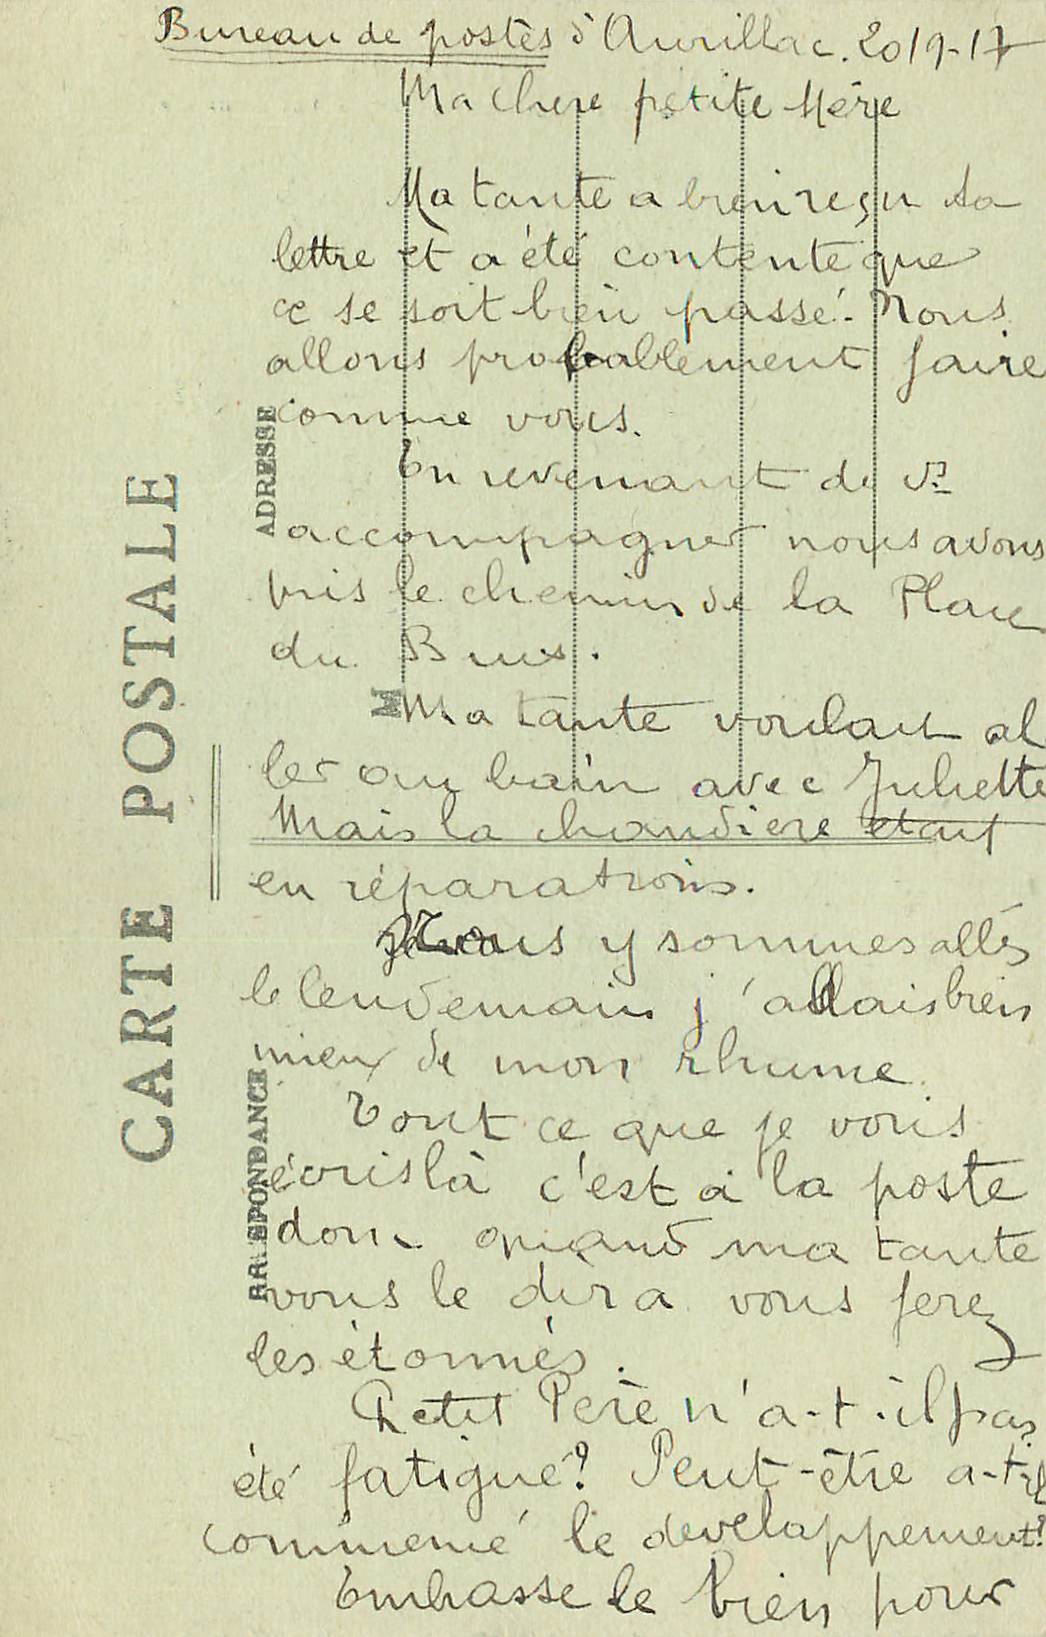 Bureau de postes d'Aurillac. 2019-17
Ma chere petite Mère
Ma tante a bien reçu ta
lettre et a été contente que
ce se soit bien passé. Nous
allons probablement faire
comme vous.
En revenant de vs
accompagner nous avons
pris le chemin de la Place
du Buis.
Ma tante voulait al
ler au bain avec Juliette
Mais la chaudiere etait
en réparations.
Nous y sommes allés
le lendemain j'allais bien
mieux de mon rhume.
Tout ce que je vous
écris là c'est à la poste
donc quand ma tante
vous le dira vous ferez
les étonnés.
Petit Père n'a-t-il pas
été fatigué? Peut-être a-t-il
commencé le developpement?
Embasse le bien pour
CARTE POSTALE
ADRESSE
M
RRESPONDANCE